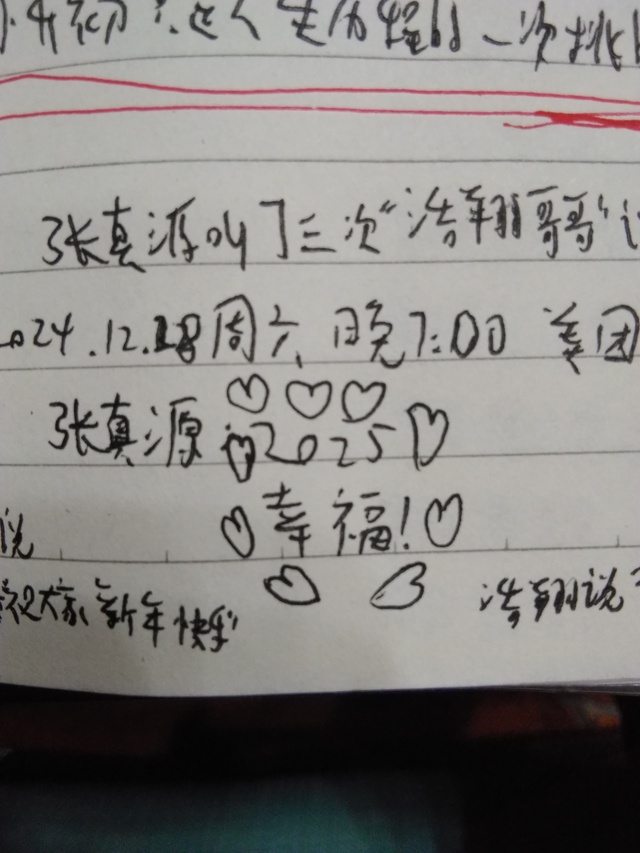 生活中的一次挑
张真源叫了三次“浩翔哥哥”
2024.12.28周六 晚7:00 美团
张真源 2025
说 幸福!
祝大家新年快乐 浩翔说